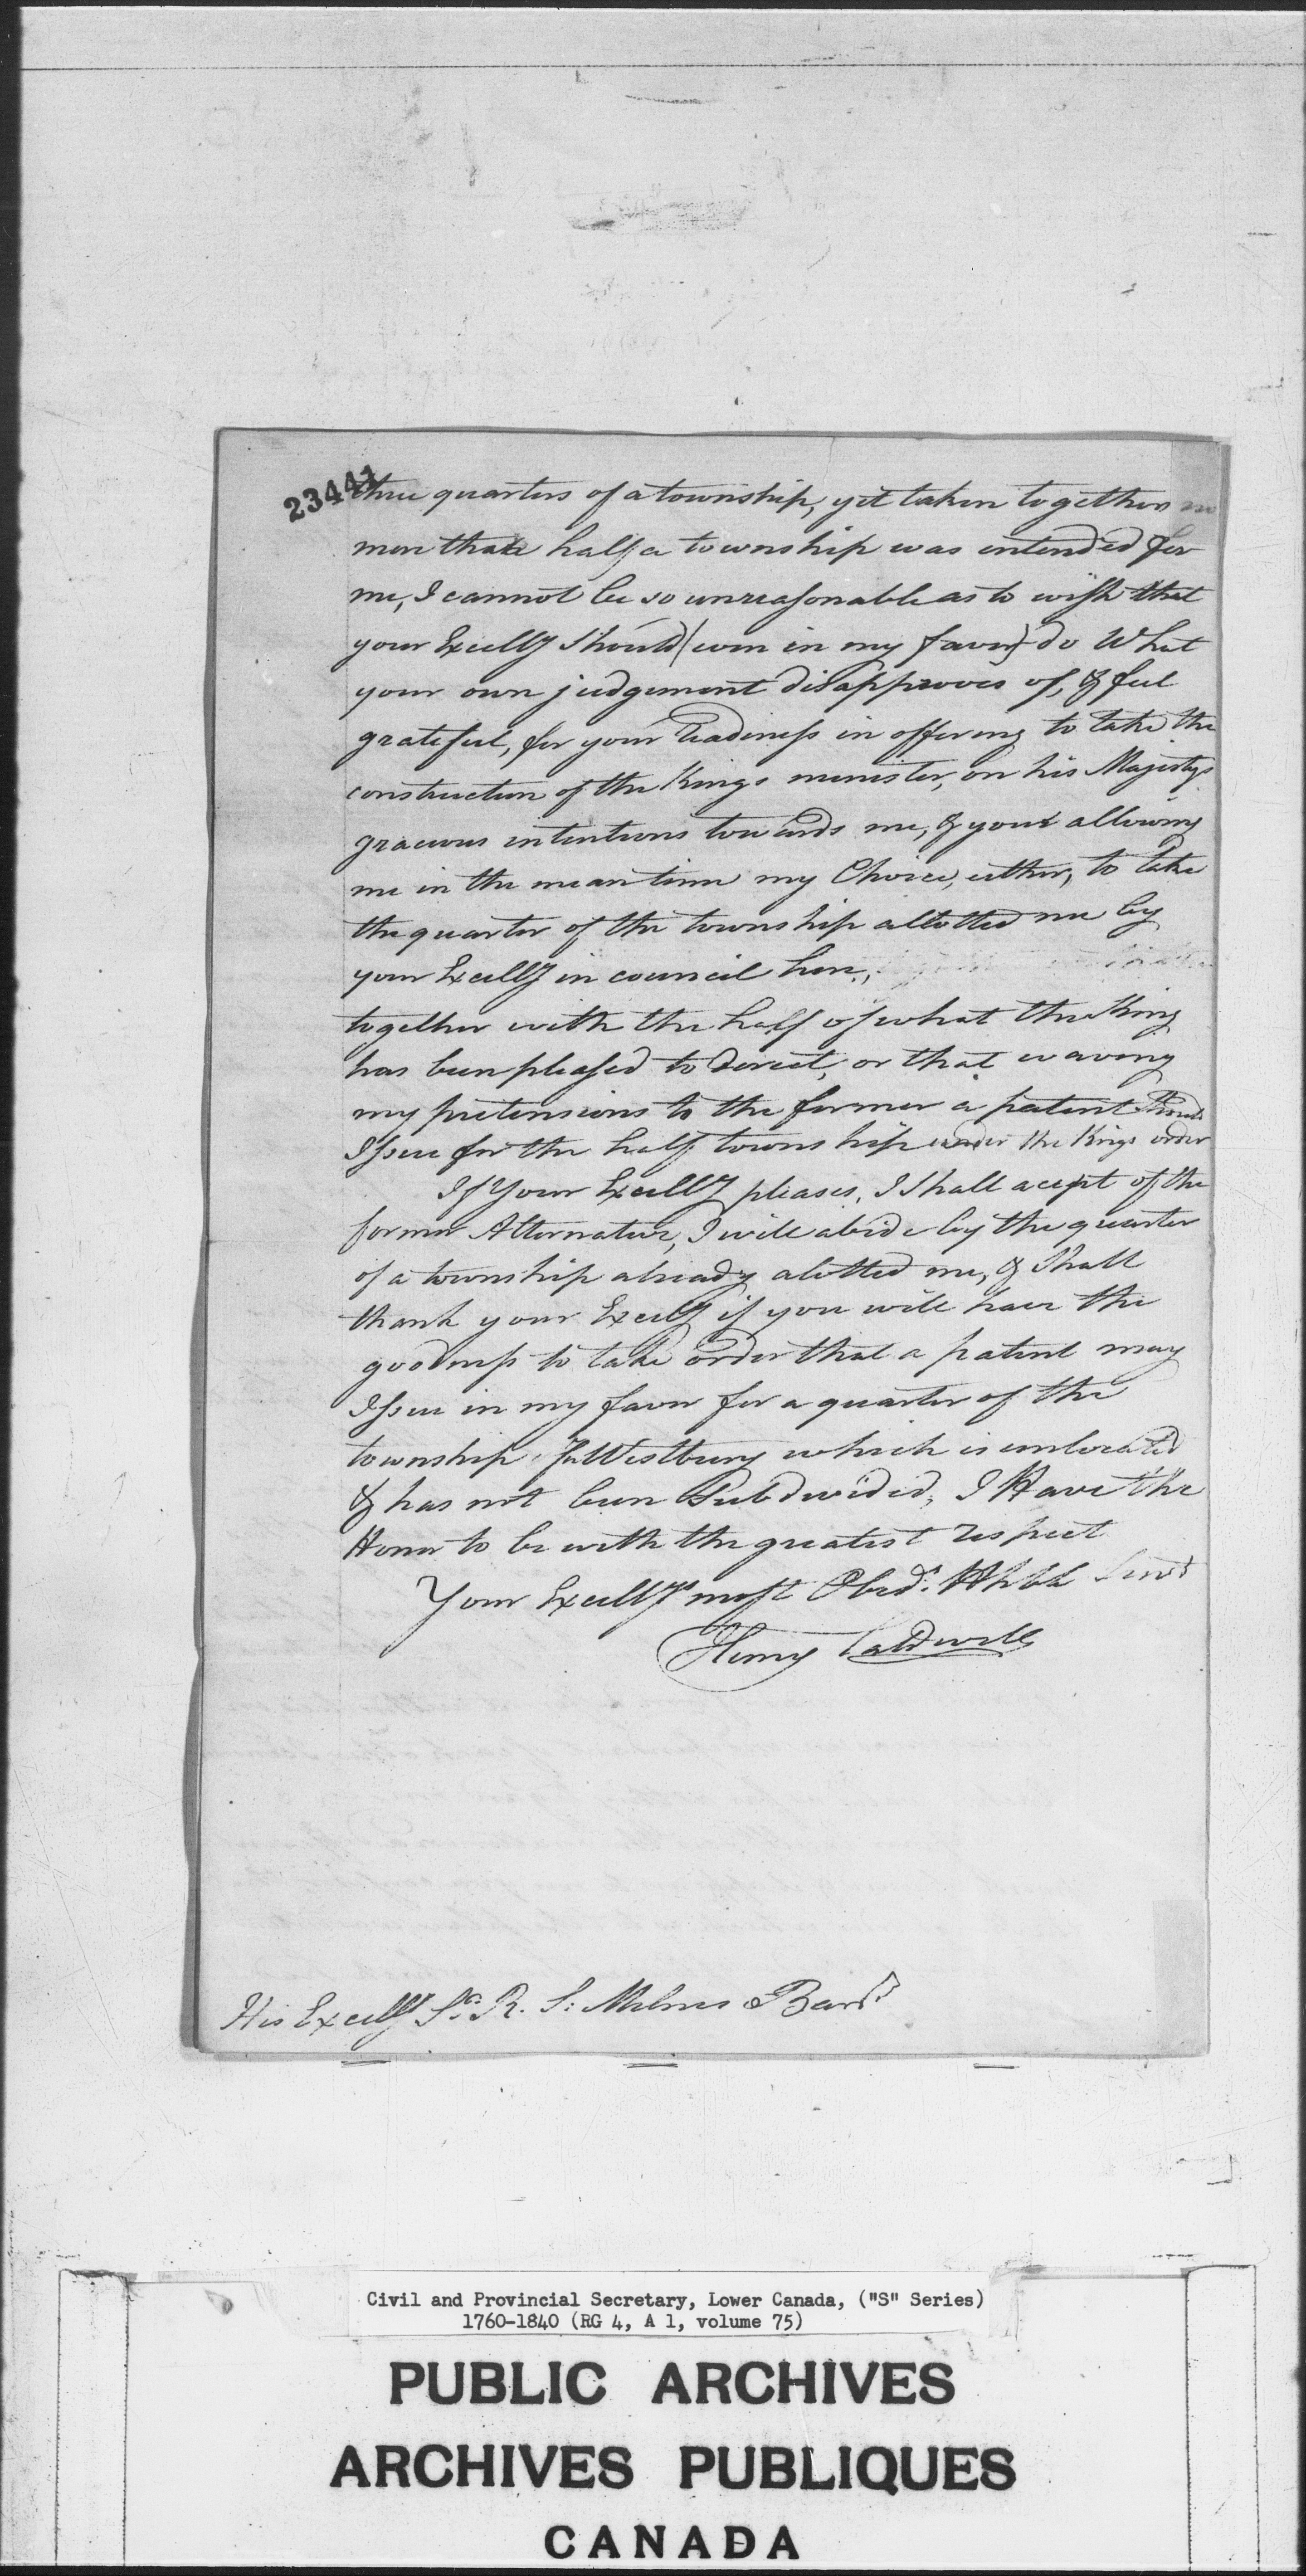 23441
three quarters of a township, yet taken together no
more than half a township was intended for
me, I cannot be so unreasonable as to wish that
your Excell'y should (even in my favor) do What
your own judgement disapproves of, & feel
grateful, for your readiness in offering to take the
construction of the Kings minister, on his Majestys
gracious intentions towards me, & your allowing
me in the mean time my Choice, either, to take
the quarter of the township allotted me by
your Excelly in council here,
together with the half of what the King
has been pleased to direct, or that waving
my pretensions to the former a patent should
Issue for the half township under the Kings order
If Your Excelly pleases, I shall acept of the
former Alternative, I will abide by the quarter
of a township already alotted me, & shall
thank your Excelly if you will have the
goodness to take order that a patent may
Issue in my favor for a quarter of the
township of Westbury which is unlocated
& has not been Subdivided, I Have the
Honor to be with the greatest respect
Your Excelly's most Obedt. Hble Servt
Henry Caldwell
His Excelly Sr. R. S: Milnes Bart
Civil and Provincial Secretary, Lower Canada, ("S" Series)
1760-1840 (RG 4, A 1, volume 75)
PUBLIC ARCHIVES
ARCHIVES PUBLIQUES
CANADA